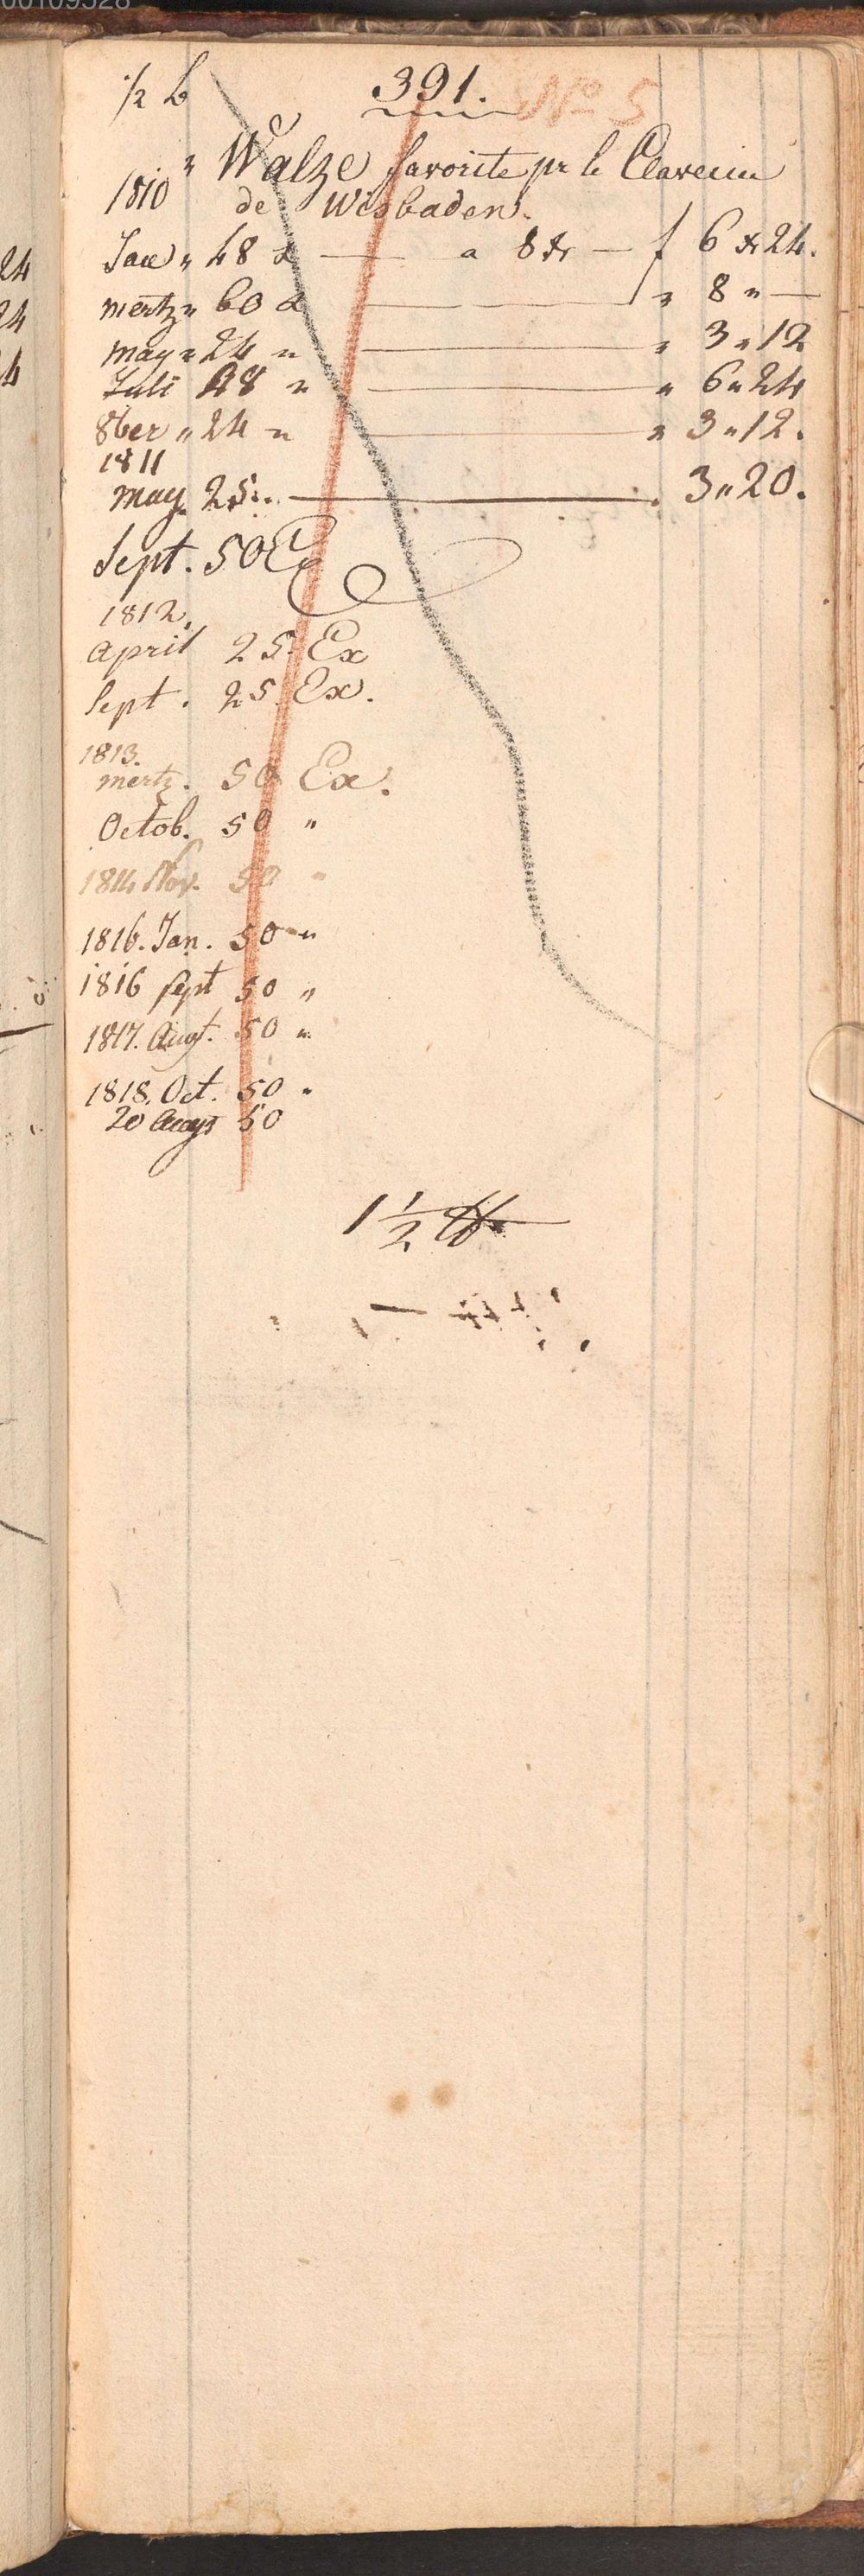 ½ b 391. No 5
" Walze favorite pr le Clavecin
1810 de Wisbaden.
Jan " 48 — a 8 xr — f 6 xr 24.
mertz " 60 — " 8 " —
may " 24 " — " 3 " 12
Juli 48 " — " 6 " 24
8ber " 24 " — " 3 " 12.
1811
may. 25. — 3 " 20.
Sept. 50 Ex
1812.
april 25. Ex
Sept. 25. Ex.
1813.
mertz. 50 Ex.
Octob. 50 "
1814 Nov. 50 "
1816. Jan. 50 "
1816 Sept 50 "
1817. Augt. 50 "
1818. Oct. 50 "
20 Augt 50
1 ½